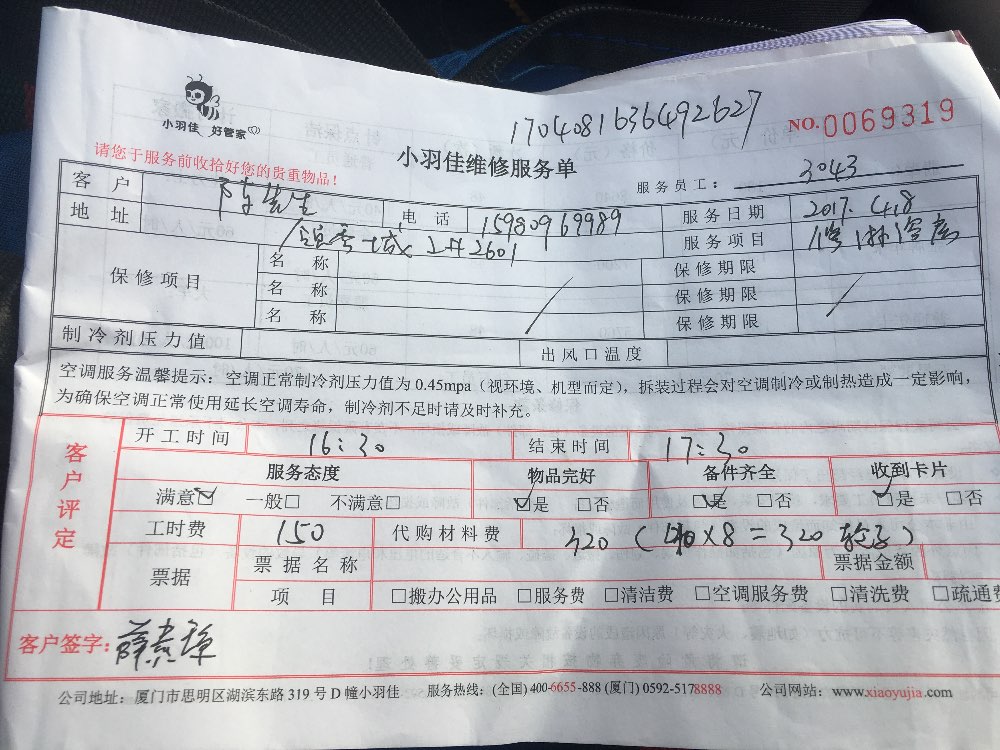 小羽佳 好管家
1704081636492627
NO.0069319
请您于服务前收拾好您的贵重物品!
小羽佳维修服务单
服务员工: 3043
客 户 陈先生 电 话 15980969989 服务日期 2017. 4.18
地 址 2601 服务项目
保修项目 名 称 保修期限
名 称 保修期限
名 称 保修期限
制冷剂压力值 出风口温度
空调服务温馨提示: 空调正常制冷剂压力值为 0.45mpa (视环境、机型而定), 拆装过程会对空调制冷或制热造成一定影响,
为确保空调正常使用延长空调寿命, 制冷剂不足时请及时补充。
客户评定
开工时间 16:30 结束时间 17:30
服务态度 物品完好 备件齐全 收到卡片
满意☑ 一般□ 不满意□ ☑是 □否 ☑是 □否 ☑是 □否
工时费 150 代购材料费 320 (40×8=320 )
票据 票据名称 票据金额
项 目 □搬办公用品 □服务费 □清洁费 □空调服务费 □清洗费 □疏通费
客户签字:
公司地址: 厦门市思明区湖滨东路 319 号 D 幢小羽佳 服务热线: (全国) 400-6655-888 (厦门) 0592-5178888 公司网站: www.xiaoyujia.com